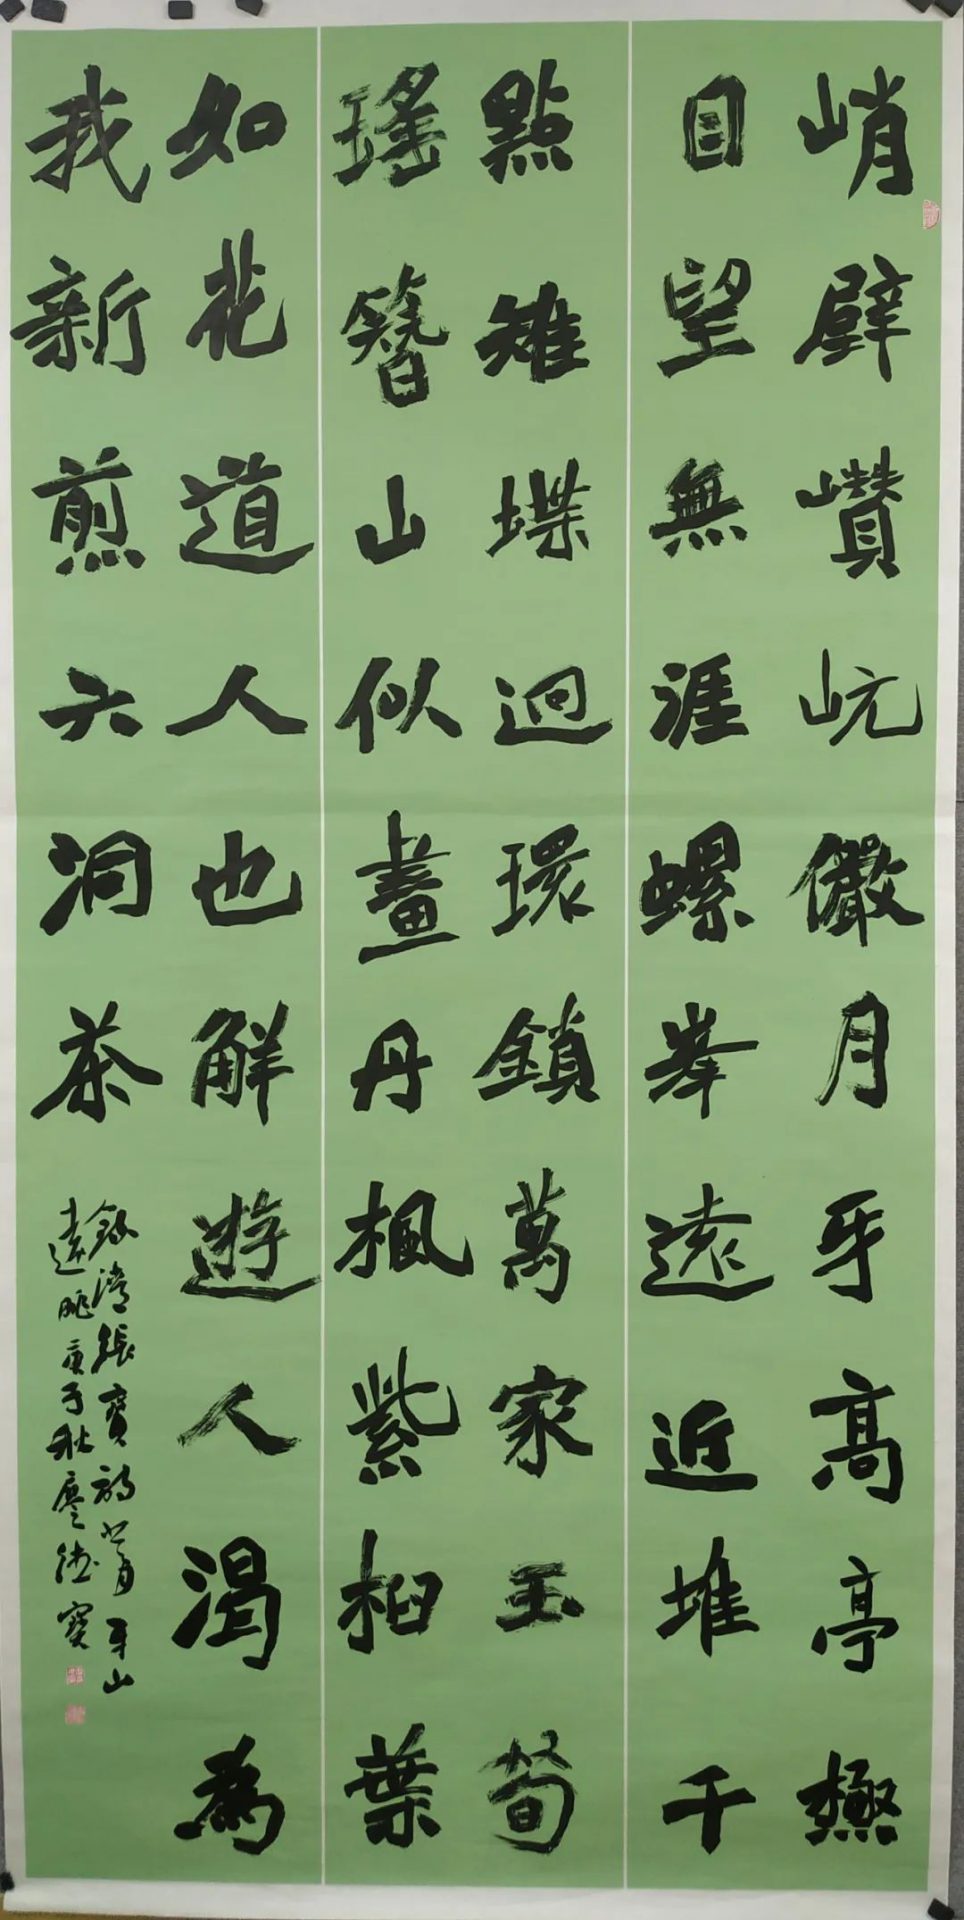 峭壁巑岏儼月牙高亭極
目望無涯螺峯遠近堆千
點雉堞迴環鎖萬家玉筍
瑤簪山似畫丹楓紫柏葉
如花道人也解遊人渴為
我新煎六洞茶
錄清張寶詩 月牙山
遠眺庚子秋廖德寶